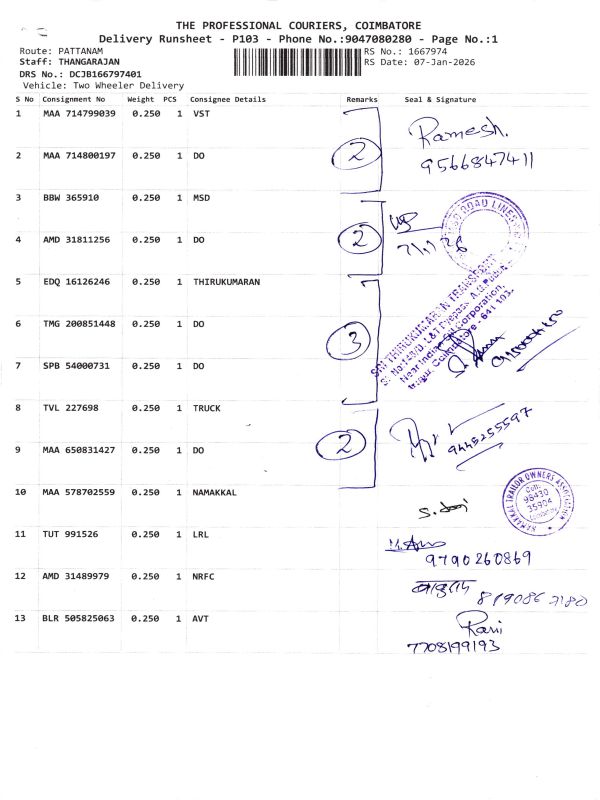 THE PROFESSIONAL COURIERS, COIMBATORE
Delivery Runsheet - P103 - Phone No.:9047080280 - Page No.:1
Route: PATTANAM RS No.: 1667974
Staff: THANGARAJAN RS Date: 07-Jan-2026
DRS No.: DCJB166797401
Vehicle: Two Wheeler Delivery
S No Consignment No Weight PCS Consignee Details Remarks Seal & Signature
1 MAA 714799039 0.250 1 VST
Ramesh.
2 MAA 714800197 0.250 1 DO 2 9566847411
3 BBW 365910 0.250 1 MSD
ROAD LINES
4 AMD 31811256 0.250 1 DO 2
5 EDQ 16126246 0.250 1 THIRUKUMARAN
SRI THIRUKUMARAN TRANSPORT
L&T Bypass
Corporation,
Coimbatore - 641 103.
6 TMG 200851448 0.250 1 DO 3
7 SPB 54000731 0.250 1 DO
8 TVL 227698 0.250 1 TRUCK
9445255597
9 MAA 650831427 0.250 1 DO 2
10 MAA 578702559 0.250 1 NAMAKKAL
NAMAKKAL TRAILOR OWNERS ASSOCIATION
Cell:
98430
35904
11 TUT 991526 0.250 1 LRL
9790260869
12 AMD 31489979 0.250 1 NRFC
13 BLR 505825063 0.250 1 AVT Rani
7708199193